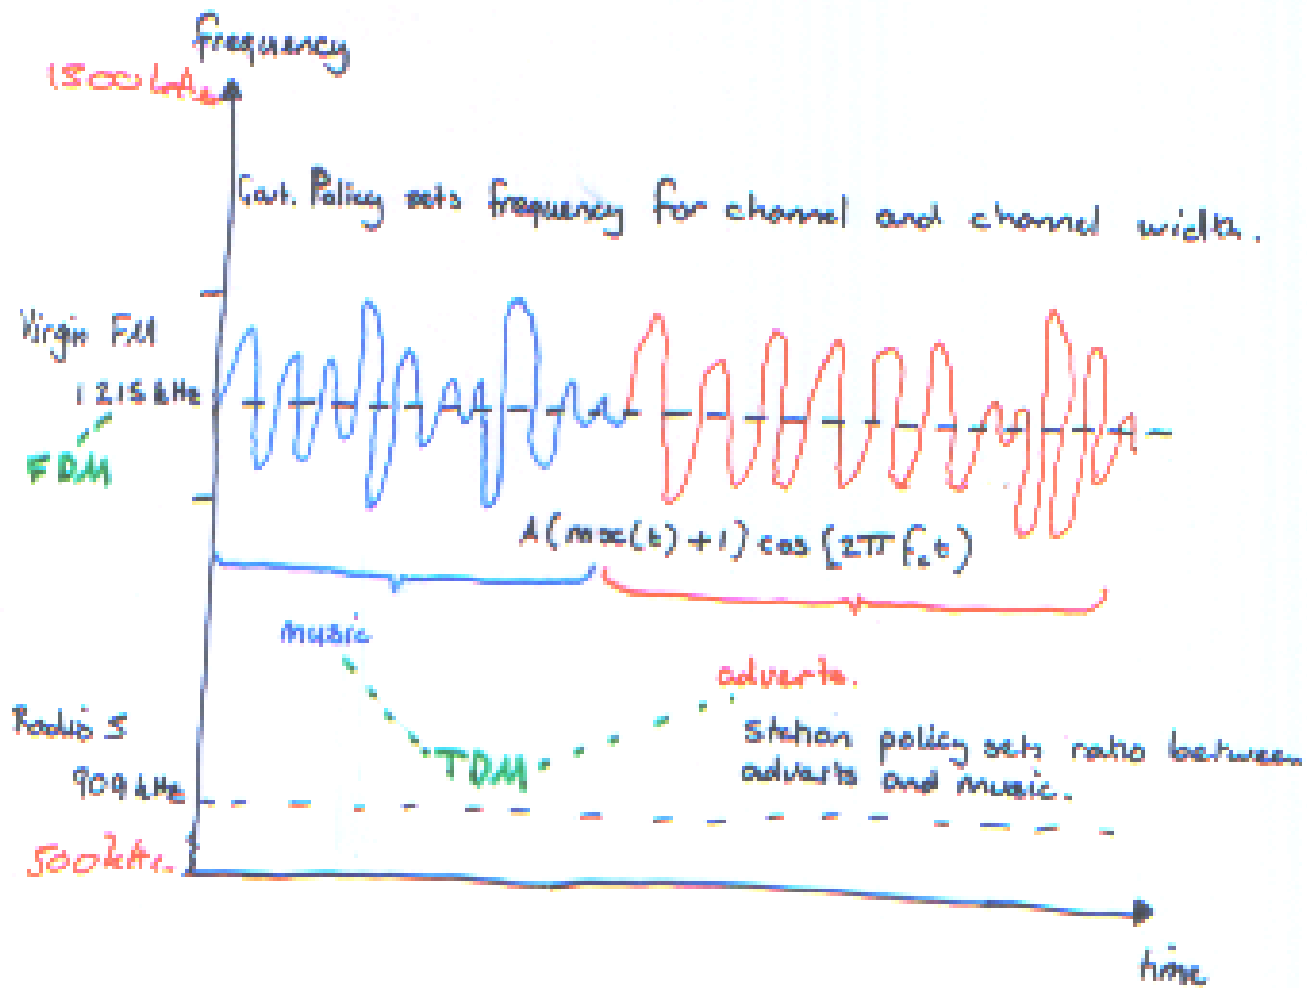 frequency
1500 kHz
Govt. Policy sets frequency for channel and channel width.
Virgin FM
1215 kHz
FDM
A(mx(t)+1) cos(2πfct)
music
adverts.
Radio 5
TDM
station policy sets ratio between
adverts and music.
909 kHz
500kHz.
time